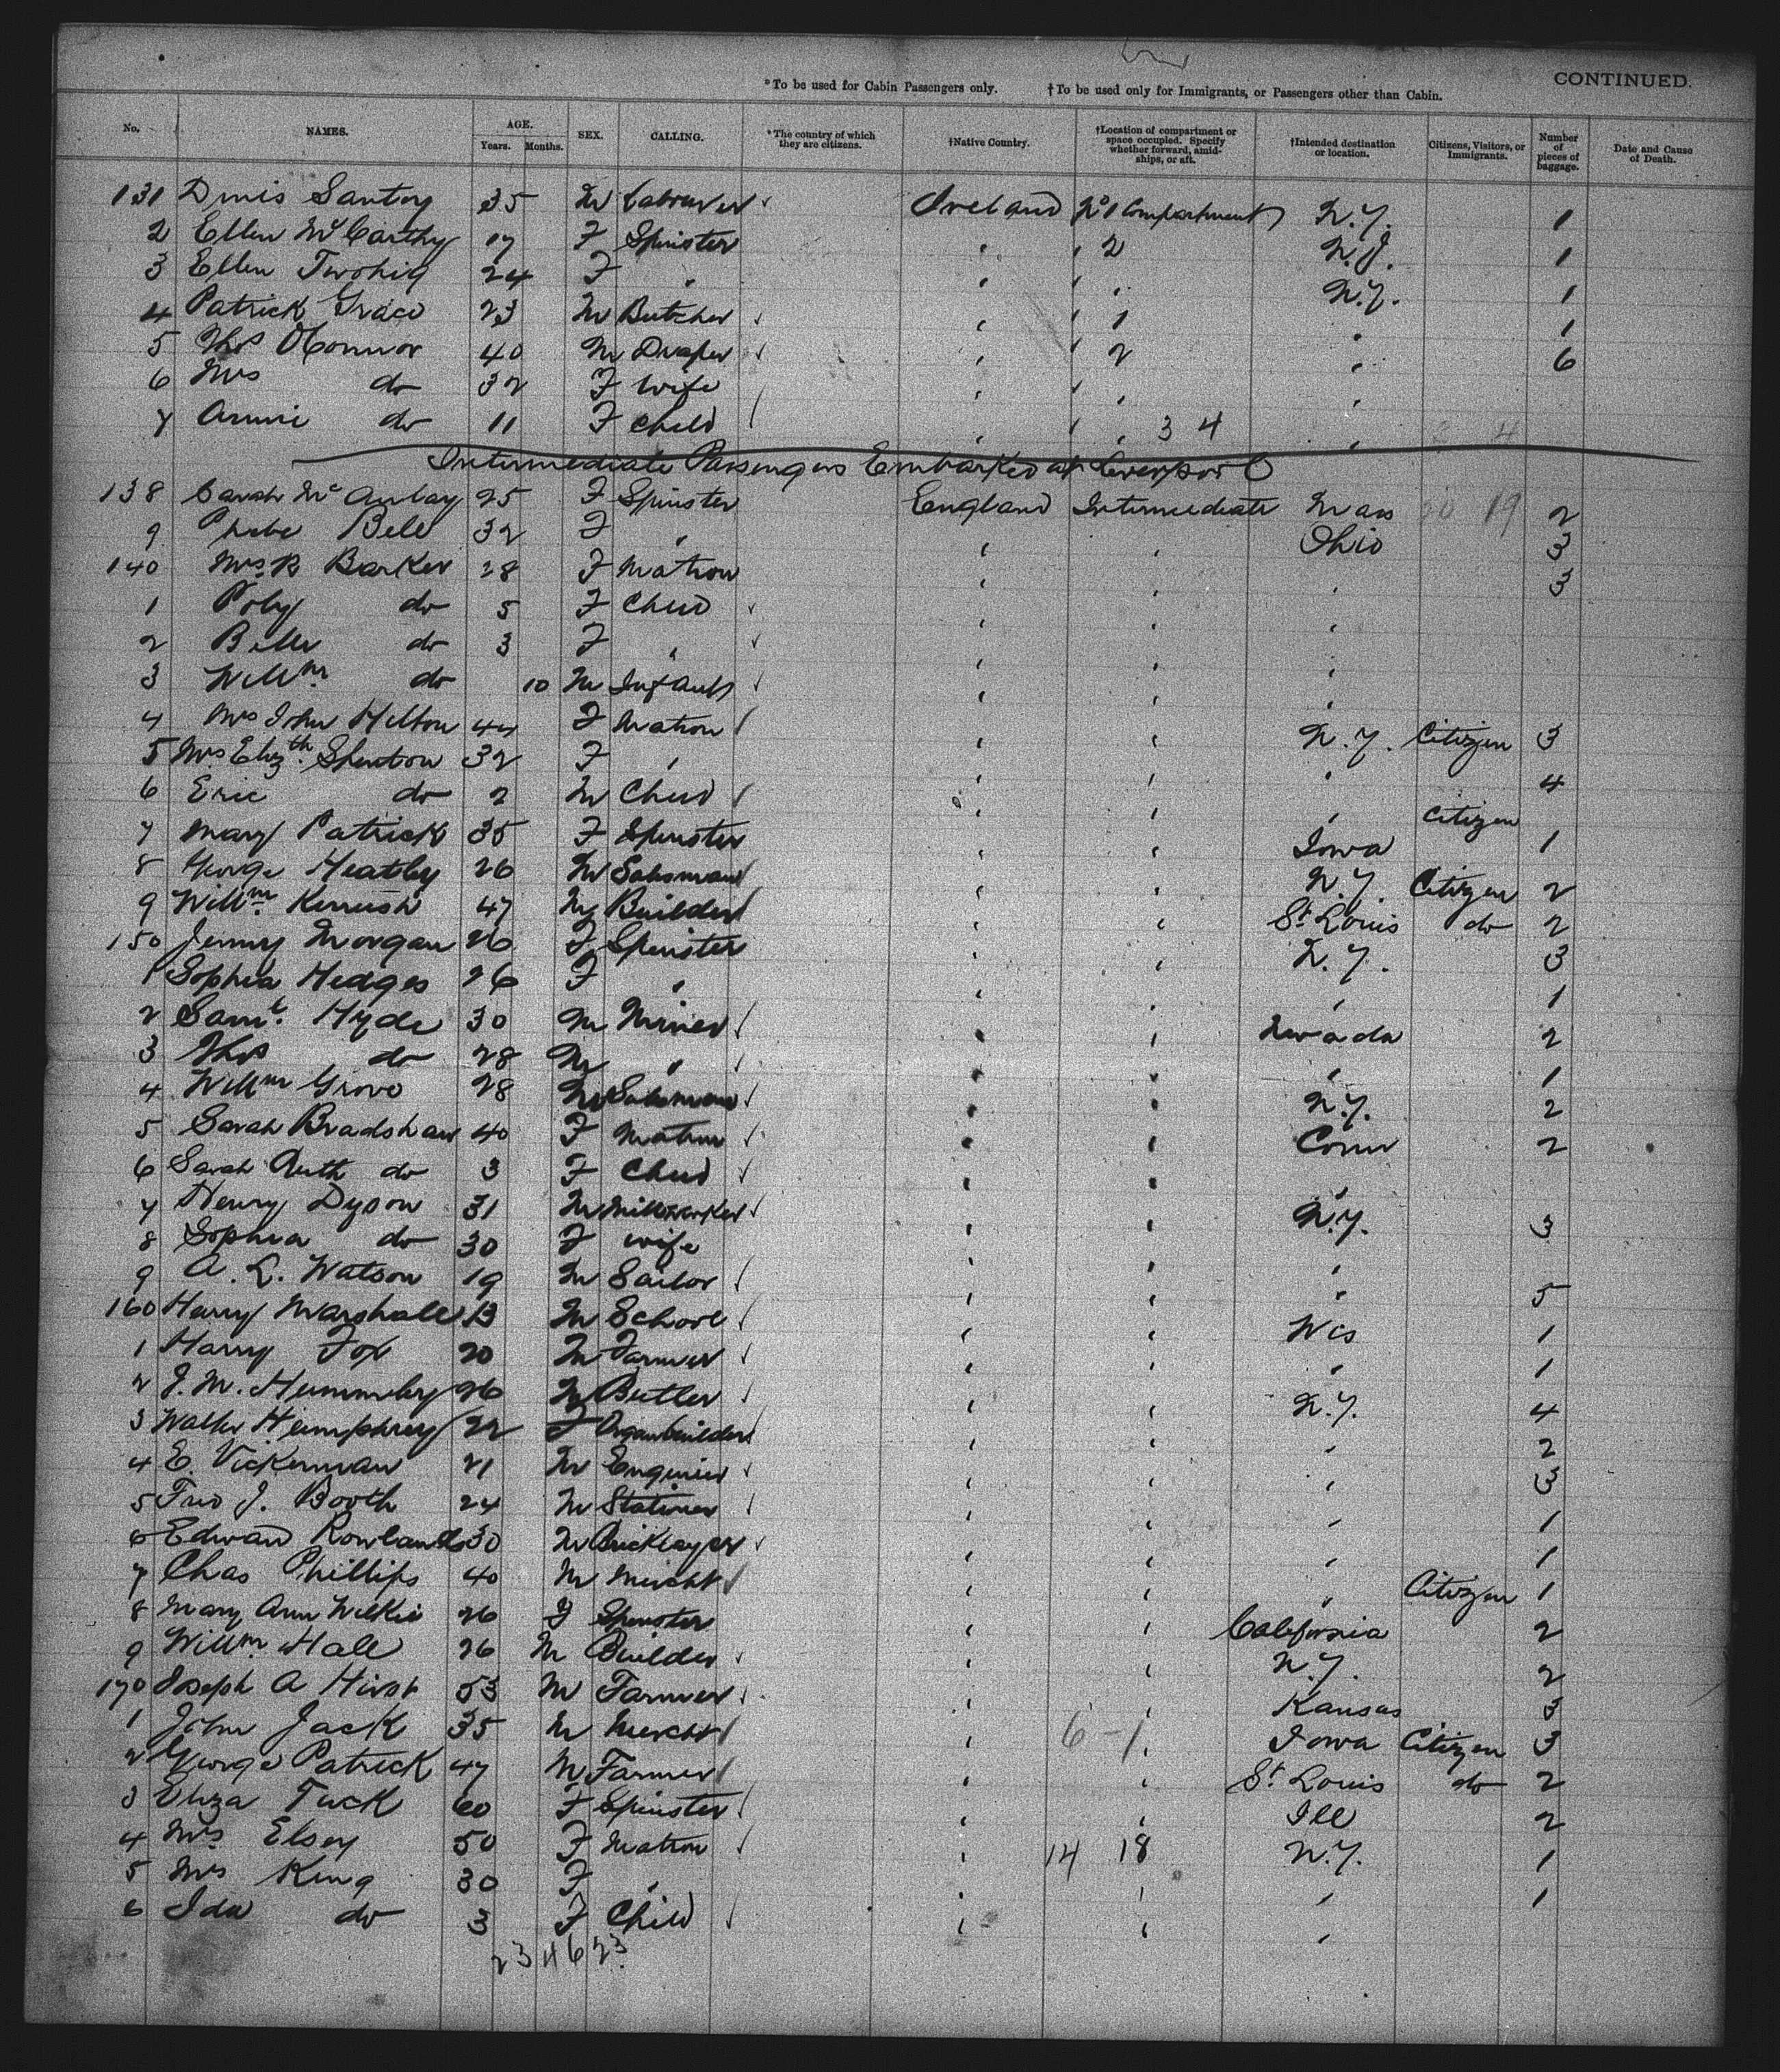 *To be used for Cabin Passengers only. †To be used only for Immigrants, or Passengers other than Cabin. CONTINUED.
No. NAMES. AGE. Years. Months. SEX. CALLING. *The country of which they are citizens. †Native Country. †Location of compartment or space occupied. Specify whether forward, amidships, or aft. †Intended destination or location. Citizens, Visitors, or Immigrants. Number of pieces of baggage. Date and Cause of Death.
131 35 M Labourer Ireland No 1 Compartment N.Y. 1
2 Ellen McCarthy 17 F Spinster " " 2 N.J. 1
3 Ellen Twohig 24 F " " " " N.Y. 1
4 Patrick Grace 23 M Butcher " " 1 " 1
5 Thos OConnor 40 M Draper " " 2 " 6
6 Mrs do 32 F Wife " " " "
7 Annie do 11 F Child " " " 3 4 "
Intermediate Passengers Embarked at Liverpool
138 Sarah McAulay 25 F Spinster England Intermediate Mass 19 2
9 Phebe Bell 32 F " " " Ohio 3
140 Mrs R Barker 28 F Matron " " " 3
1 Poly do 5 F Child " " "
2 do 3 F " " " "
3 Willm do 10 M Infant " " "
4 Mrs John Hilton 44 F Matron " " N.Y. Citizen 3
5 Mrs Elizth Shenton 32 F " " " " 4
6 Eric do 2 M Child " " " Citizen
7 Mary Patrick 35 F Spinster " " Iowa 1
8 George Heatley 26 M Salsman " " N.Y. Citizen 2
9 Willm Kerruish 47 M Builder " " St Louis do 2
150 Jenny Morgan 26 F Spinster " " N.Y. 3
1 Sophia Hedges 26 F " " " " 1
2 Saml. Hyde 30 M Miner " " Nevada 2
3 Thos do 28 M " " " " 1
4 Willm Grove 28 M Salsman " " N.Y. 2
5 Sarah Bradshaw 40 F Matron " " Conn 2
6 Sarah Ruth do 3 F Child " " "
7 Henry Dyson 31 M Millworker " " N.Y. 3
8 Sophia do 30 F Wife " " "
9 A. L. Watson 19 M Sailor " " " 5
160 Harry Marshall 13 M School " " Wis 1
1 Harry Fox 20 M Farmer " " " 1
2 J. M. 26 M Butler " " N.Y. 4
3 Walter Humphrey 22 F Organbuilder " " " 2
4 E. Vickerman 21 M Engineer " " " 3
5 Fred J. Booth 24 M Stationer " " 1
6 Edward Rowland 30 M Bricklayer " " " 1
7 Chas Phillips 40 M Mercht " " " Citizen 1
8 Mary Ann Wilkie 26 F Spinster " " California 2
9 Willm Hall 26 M Builder " " N.Y. 2
170 Joseph A Hirst 53 M Farmer " " Kansas 3
1 John Jack 35 M Mercht " 6 - 1 " Iowa Citizen 3
2 George Patrick 47 M Farmer " " St Louis do 2
3 Eliza Tuck 60 F Spinster " " Ill 2
4 Mrs Elsey 50 F Matron " 14 18 N.Y. 1
5 Mrs King 30 F " " " " 1
6 Ida do 3 F Child " " "
23 4 6 23